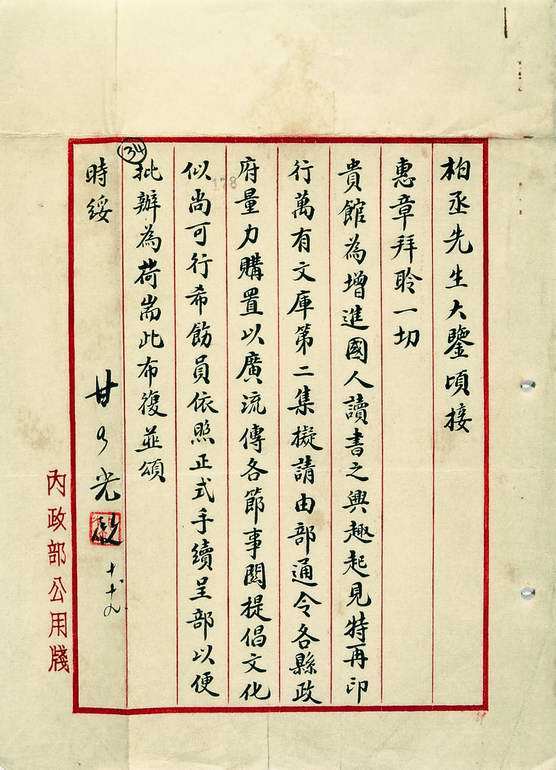 柏丞先生大鑒頃接
惠章拜聆一切
貴館為增進國人讀書之興趣起見特再印
行萬有文庫第二集擬請由部通令各縣政
府量力購置以廣流傳各節事關提倡文化
似尚可行希飭員依照正式手續呈部以便
批辦為荷耑此布復並頌
時綏
甘乃光
十、十九
內政部公用牋
34
178